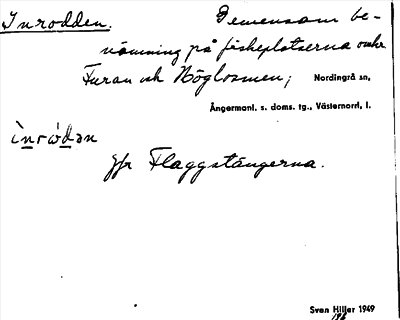 Inrodden. Gemensam be-
nämning på fiskeplatserna
Furan och Höglosmen; Nordingrå sn,
Ångermanl. s. doms. tg., Västernorrl. l.
ìnrὼdən
Jfr Flaggstängerna.
Sven Hiller 1949